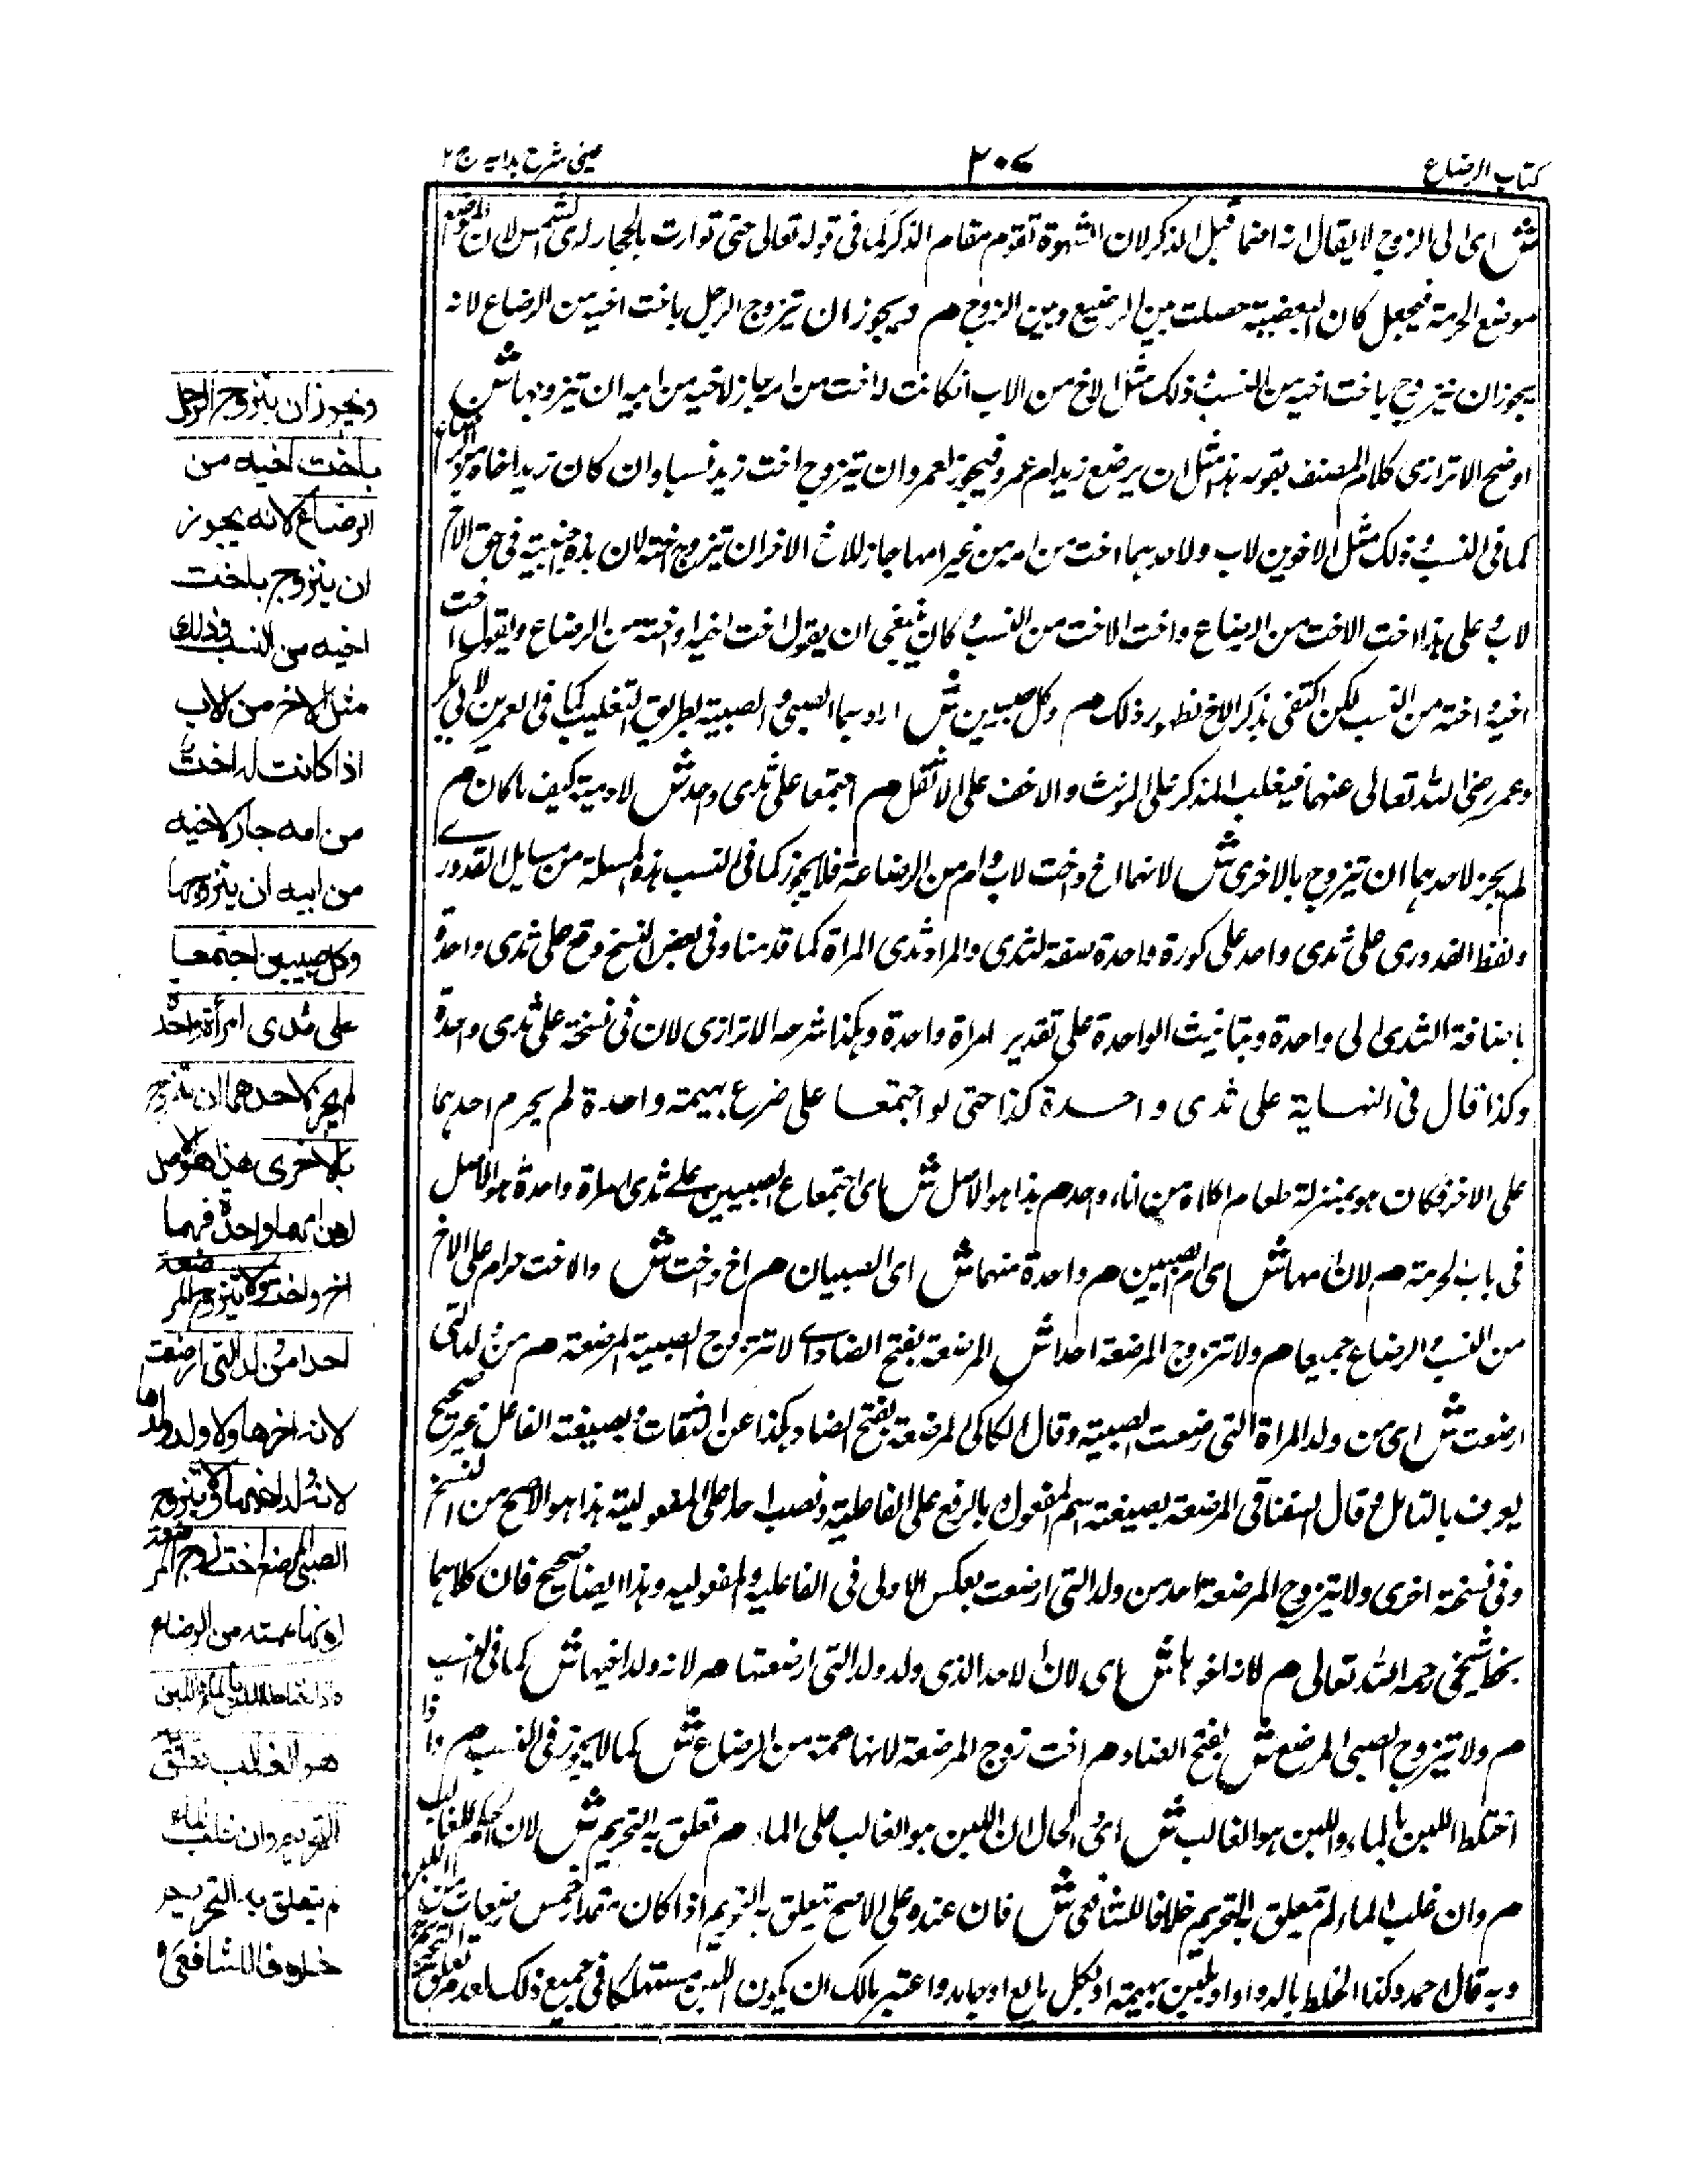 كتاب الرضاع
٢٠٧
عينى شرح هدايه ج ٢
ش اى الى الزوج لا يقال انه اضمار قبل الذكر لان الشهرة تقوم مقام الذكر كما فى قوله تعالى حتى توارت بالحجاب اى الشمس لان
موضع الحرمة فيجعل كان البعضية حصلت بين الرضيع وبين الزوج م ويجوز ان يتزوج الرجل باخت اخيه من الرضاع لانه
يجوز ان يتزوج باخت اخيه من النسب وذلك مثل الاخ من الاب اذا كانت له اخت من امه جاز لاخيه من ابيه ان يتزوجها ش
اوضح الاترازى كلام المصنف بقوله هذا مثل ان يرضع زيد ام عمرو فيجوز لعمرو ان يتزوج اخت زيد نسبا وان كان زيد اخاه من الرضاع
كما فى النسب وذلك مثل الاخوين لاب ولاحدهما اخت من امه من غير امها جاز للاخ الاخر ان يتزوج اخته لان هذه اجنبية فى حق الاخ
لاب وعلى هذا اخت الاخت من الرضاع واخت الاخت من النسب وكان ينبغى ان يقول اخت اخيه او اخته من الرضاع ويقول اخت
اخيه او اخته من النسب لكن اكتفى بذكر الاخ لظهور ذلك م وكل صبيين ش اراد بهما الصبى والصبية بطريق التغليب كما فى العمرين لابى بكر
وعمر رضى الله تعالى عنهما فيغلب المذكر على المونث والاخف على الاثقل م اجتمعا على ثدى واحد ش لآدمية كيف ما كان م
لم يجز لاحدهما ان يتزوج بالاخرى ش لانهما اخ واخت لاب وام من الرضاعة فلا يجوز كما فى النسب هذه المسئلة من مسايل القدورى
ولفظ القدورى على ثدى واحد على كورة واحدة صفة لثدى والمراد ثدى المراة كما قدمنا وفى بعض النسخ وقع على ثدى واحدة
باضافة الثدى الى واحدة وبتانيث الواحدة على تقدير امراة واحدة وهكذا شرحه الاترازى لان فى نسخة على ثدى واحدة
وكذا قال فى النهاية على ثدى واحدة كذا حتى لو اجتمعا على ضرع بهيمة واحدة لم يحرم احدهما
على الاخر فكان هو بمنزلة طعام اكلاه من اناء واحد م هذا هو الاصل ش اى اجتماع الصبيين على ثدى امراة واحدة هو الاصل
فى باب الحرمة م لان امهما ش اى ام الصبيين م واحدة منهما ش اى الصبيان م اخ واخت ش والاخت حرام على الاخ
من النسب والرضاع جميعا م ولا تتزوج المرضعة احدا ش المرضعة بفتح الضاد اى لا تتزوج الصبية المرضعة م من ولد التى
ارضعت ش اى من ولد المراة التى ارضعت الصبية وقال الكاكى المرضعة بفتح الضاد هكذا عن الثقات وبصيغة الفاعل غير صحيح
يعرف بالتامل وقال السغناقى المرضعة بصيغة اسم المفعول بالرفع على الفاعلية ونصب احدا على المفعولية هذا هو الاصح من النسخ
وفى نسخة اخرى ولا يتزوج المرضعة احد من ولد التى ارضعت بعكس الاولى فى الفاعلية والمفعولية وهذا ايضا صحيح فان كلاهما
بخط شيخى رحمه الله تعالى م لانه اخوها ش اى لان الاحد الذى ولد ولد التى ارضعتها م لانه ولد اخيها ش كما فى النسب
م ولا يتزوج الصبى المرضع ش بفتح الضاد م اخت زوج المرضعة لانها عمته من الرضاع ش كما لا يجوز فى النسب م واذا
اختلط اللبن بالماء واللبن هو الغالب ش اى الحال ان اللبن هو الغالب على الماء م تعلق به التحريم ش لان الحكم للغالب
م وان غلب الماء لم يتعلق به التحريم خلافا للشافعى ش فان عنده على الاصح يتعلق به التحريم اذا كان مقدار خمس رضعات من اللبن
وبه قال احمد وكذا الخلط بالدواء او بلبن بهيمة او بكل مايع او جامد واعتبر مالك ان يكون اللبن مستهلكا فى جميع ذلك لعدم تعلق التحريم
ويجوز ان يتزوج الرجل
باخت اخيه من
الرضاع لانه يجوز
ان يتزوج باخت
اخيه من النسب وذلك
مثل الاخ من الاب
اذا كانت له اخت
من امه جاز لاخيه
من ابيه ان يتزوجها
وكل صبيين اجتمعا
على ثدى امرأة واحدة
لم يجز لاحدهما ان يتزوج
بالاخرى هذا هو الاصل
لان امهما واحدة فهما
اخ واخت ولا يتزوج المرضعة
احدا من ولد التى ارضعت
لانه اخوها ولا ولد ولدها
لانه ولد اخيها ولا يتزوج
الصبى المرضع اخت زوج المرضعة
لانها عمته من الرضاع
واذا اختلط اللبن بالماء واللبن
هو الغالب تعلق به
التحريم وان غلب الماء
لم يتعلق به التحريم
خلافا للشافعى